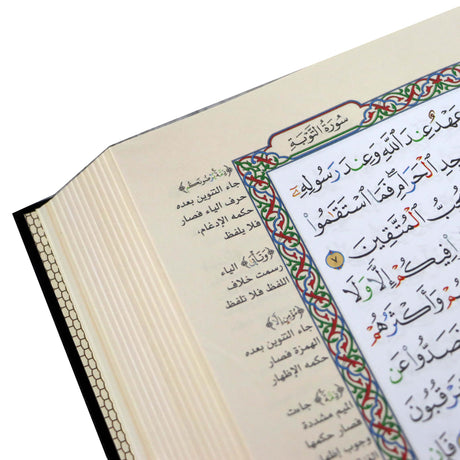 سُورَةُ التَّوْبَة
عَهْدٌ عِندَ اللَّهِ وَعِندَ رَسُولِهِۦٓ
الْحَرَامِ فَمَا اسْتَقَٰمُوا۟
الْمُتَّقِينَ ٧
فِيكُمْ إِلًّا وَلَا
وَأَكْثَرُهُمْ
فَصَدُّوا۟ عَن
يَرْقُبُونَ
جاء التنوين بعده
حرف الياء فصار
حكمه الإدغام،
فلا يلفظ
الياء
رسمت خلاف
اللفظ فلا تلفظ
جاء التنوين بعده
الهمزة فصار
حكمه الإظهار
جاءت
الميم مشددة
فصار حكمها
وجوب إظهار